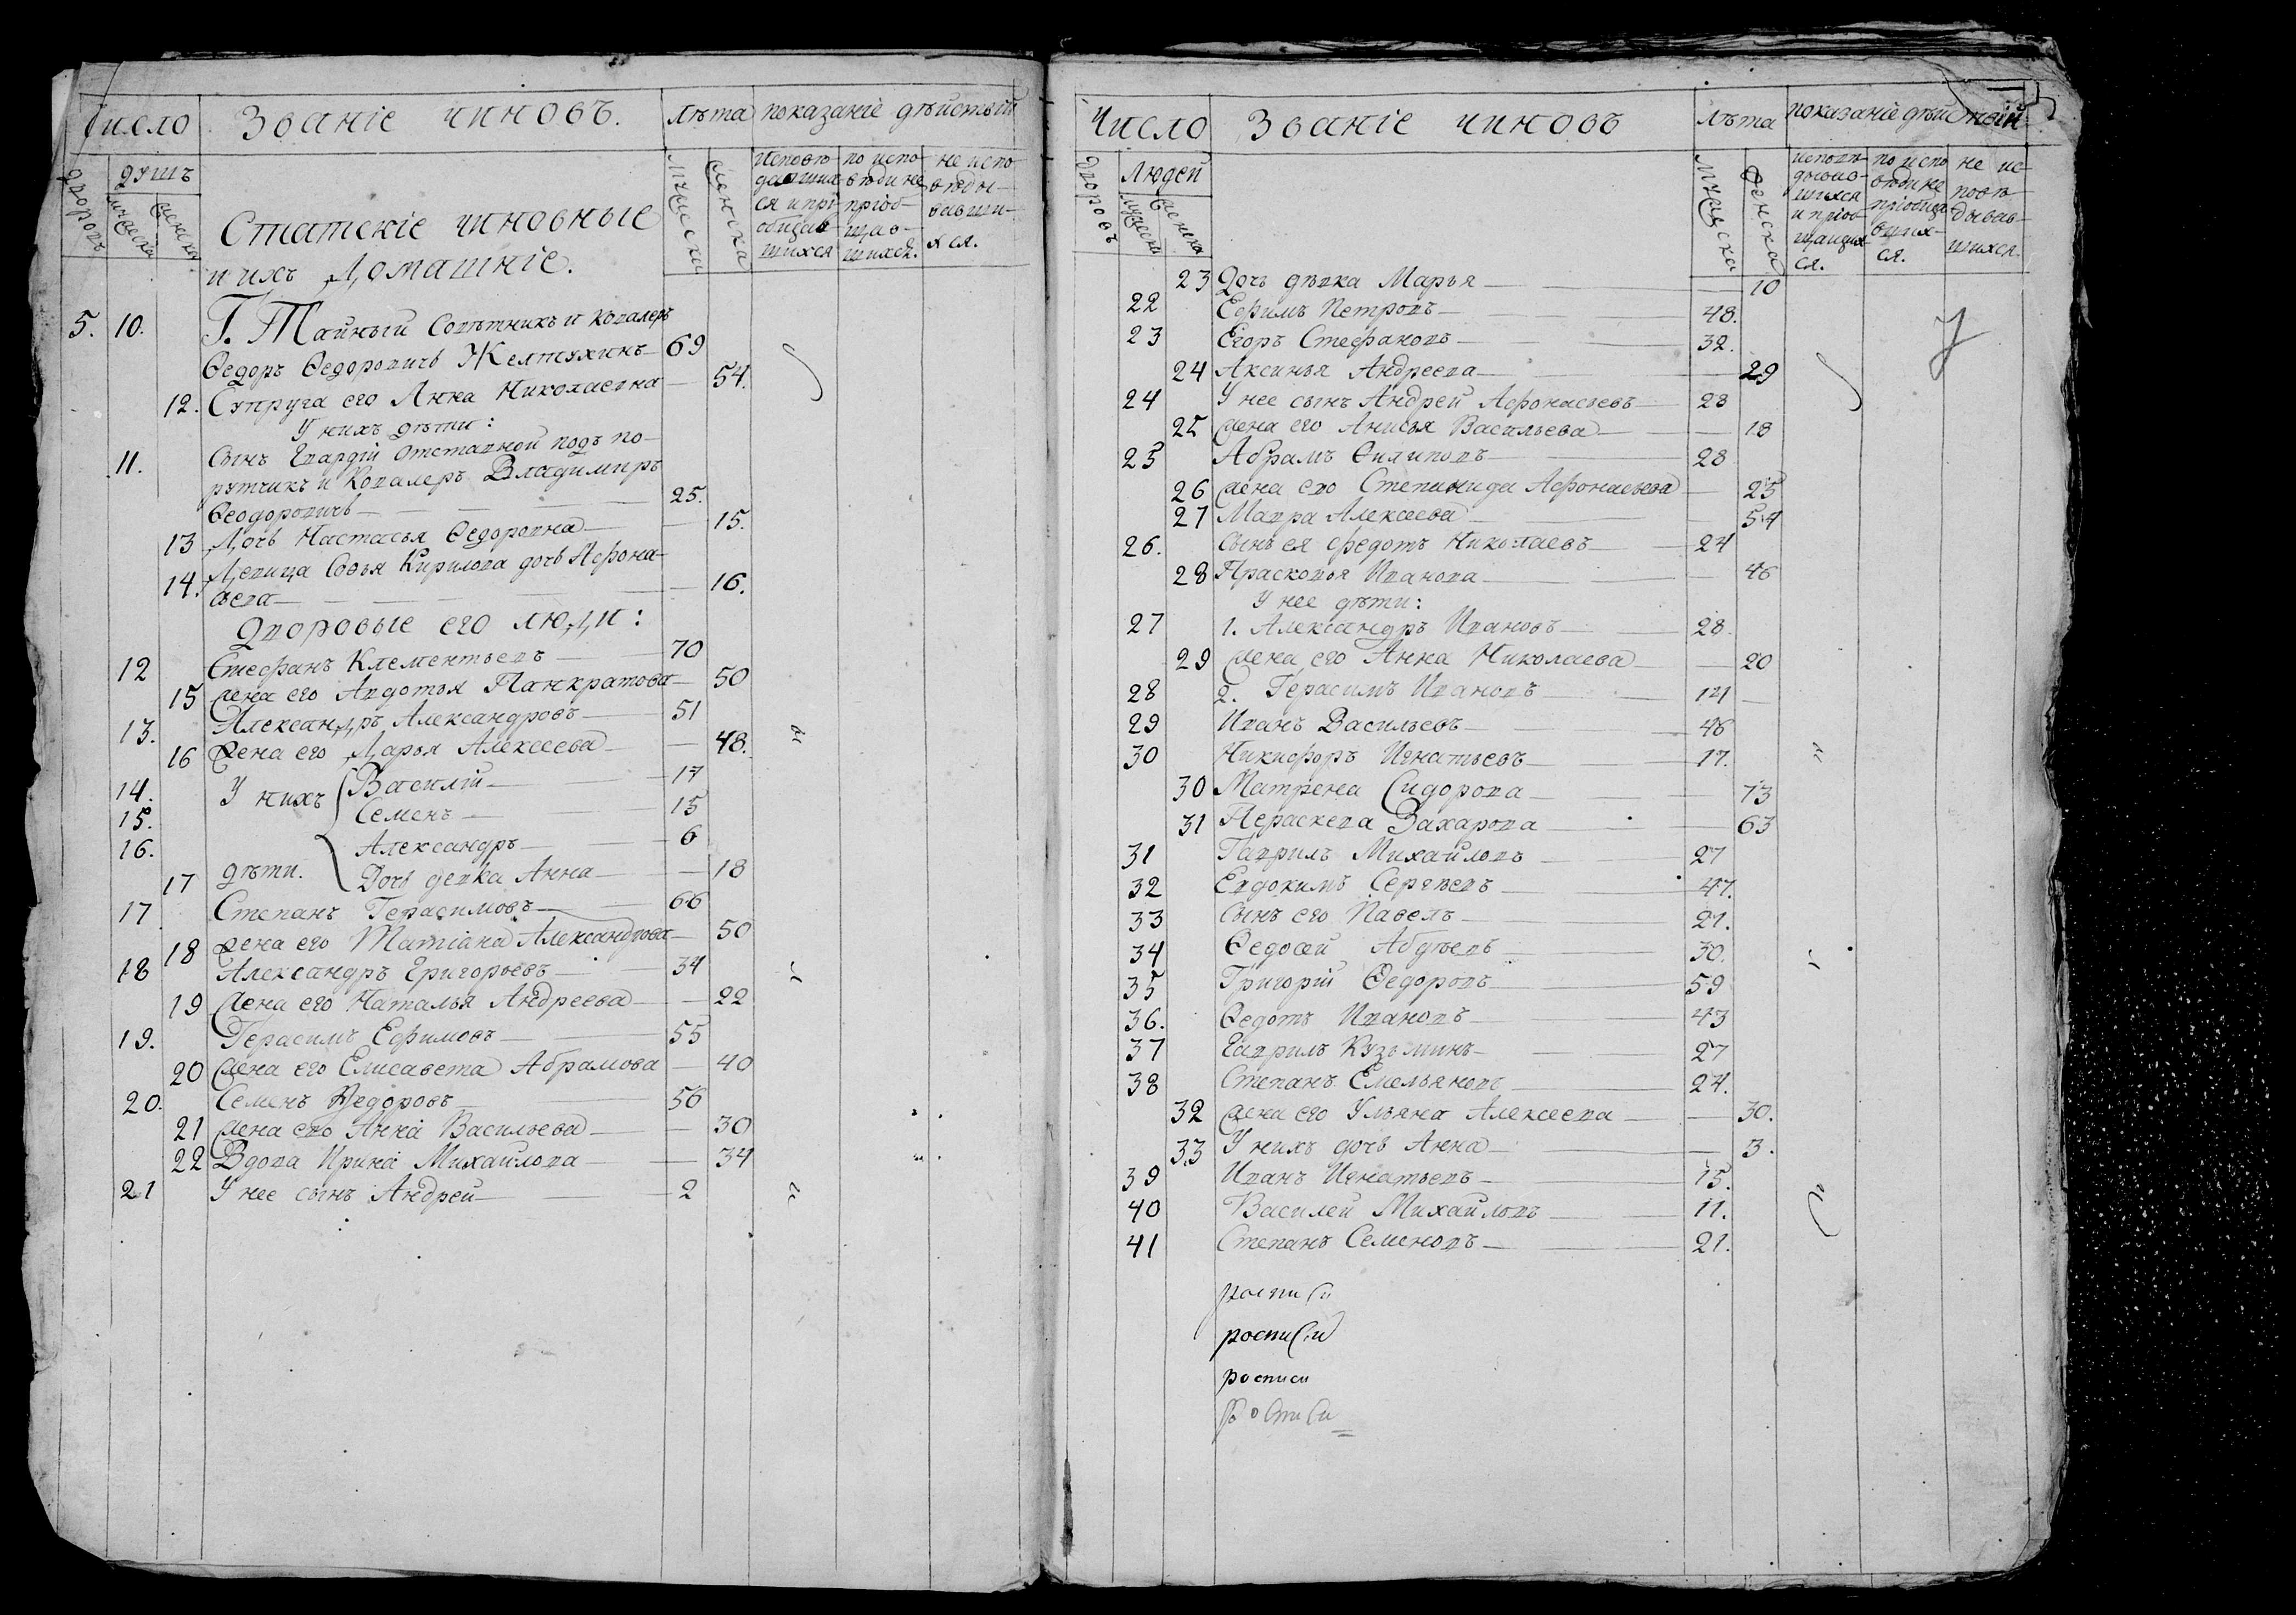 Число Званіе чиновъ. Лѣта показаніе дѣиствій
дворовъ душъ мужеска женска мужеска женска
Исповѣдавшихся и пріобщавшихся по исповѣди не пріобщавшихся. не исповѣдывавшихся.
Статскіе чиновные
и ихъ Домашніе.
5. 10. Г. Тайный Совѣтникъ и Кавалеръ
Ѳедоръ Ѳедоровичь Желтухинъ 69
12. Супруга его Анна Николаевна 54.
У нихъ дѣти:
11. Сынъ Гвардіи отставной подъ по-
рутчикъ и Кавалеръ Владимиръ
Ѳеодоровичь 25.
13 Дочь Настасья Ѳедоровна 15.
14. Девица Софья Кирилова дочь Афона-
сьева 16.
Дворовые его люди:
12 Стефанъ Клементьевъ 70
15 Жена его Авдотья Панкратова 50
13. Александръ Александровъ 51
16 Жена его Дарья Алексеева 48.
14. У нихъ Василій 17
15. Семенъ 15
16. Александръ 6
17 дѣти. Дочь девка Анна 18
17 Степанъ Герасимовъ 66
18 Жена его Татіана Александрова 50
18 Александръ Григорьевъ 34
19 Жена его Наталья Андреева 22
19. Герасимъ Ефимовъ 55
20 Жена его Елисавета Абрамова 40
20. Семенъ Ѳедоровъ 56
21 Жена его Анна Васильева 30
22 Вдова Ирина Михаилова 34
21 У нее сынъ Андрей 2
Число Званіе чиновъ Лѣта показаніе дѣиствій
дворовъ Людей мужеска женска мужеска женска
исповѣдывавшихся и пріобщающихся. по исповѣди не пріобщавшихся. не исповѣдывавшихся.
23 Дочь дѣвка Марья 10
22 Ефимъ Петровъ 48.
23 Егоръ Стефановъ 32.
24 Аксинья Андреева 29
24 У нее сынъ Андрей Афонасьевъ 28
25 Жена его Анисья Васильева 18
25 Абрамъ Филиповъ 28
26 Жена его Степанида Афонасьева 25
27 Мавра Алексеева 54
26. Сынъ ея Федотъ Николаевъ 24
28 Прасковья Иванова 46
У нее дѣти:
27 1. Александръ Ивановъ 28.
29 Жена его Анна Николаева 20
28 2. Герасимъ Ивановъ 14
29 Иванъ Васильевъ 46
30 Никифоръ Игнатьевъ 17.
30 Матрена Сидорова 73
31 Пераскева Захарова 63
31 Гаврилъ Михайловъ 27
32 Евдокимъ Сергѣевъ 47.
33 Сынъ его Павелъ 21.
34 Ѳедосей Абдѣевъ 30.
35 Григорій Ѳедоровъ 59
36. Ѳедотъ Ивановъ 43
37 Гаврилъ Кузьминъ 27
38 Степанъ Емельяновъ 24.
32 Жена его Ульяна Алексеева 30.
33 У нихъ дочь Анна 3.
39 Иванъ Игнатьевъ 15.
40 Василей Михайловъ 11.
41 Степанъ Семеновъ 21.
росписи
росписи
росписи
росписи